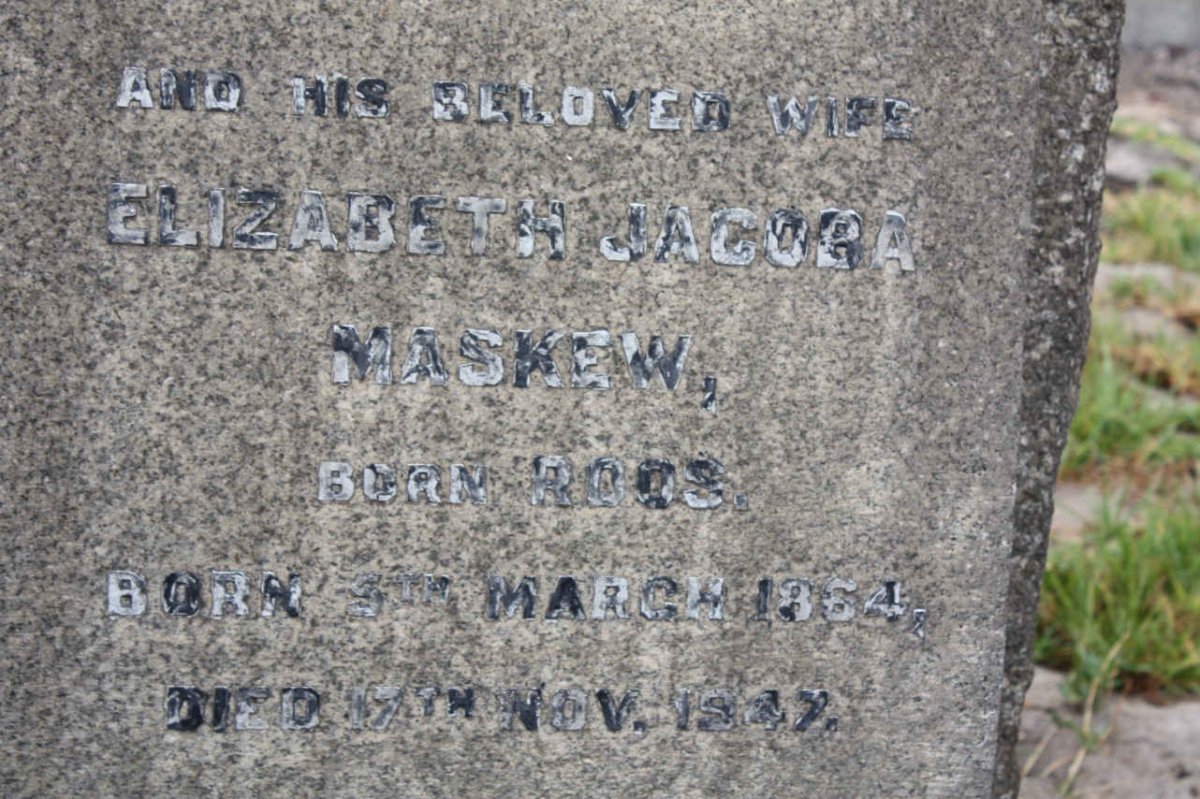 AND HIS BELOVED WIFE
ELIZABETH JACOBA
MASKEW,
BORN ROOS.
BORN 5TH MARCH 1864,
DIED 17TH NOV. 1947.